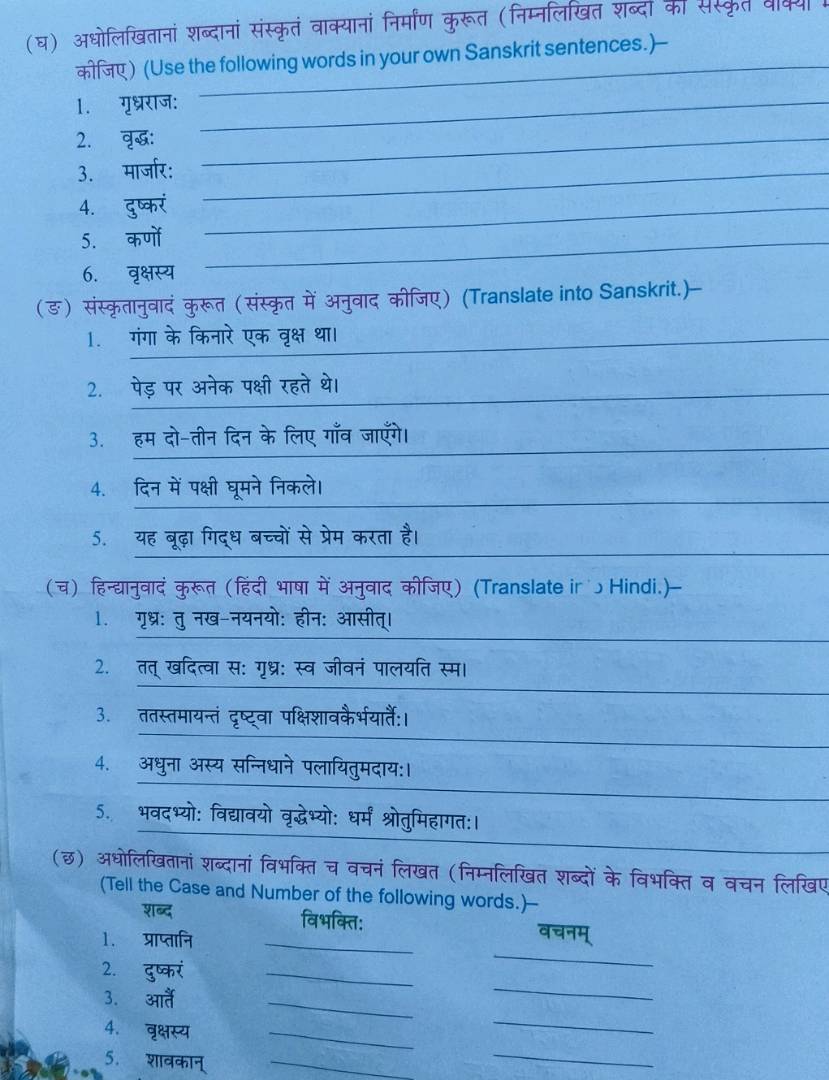 (घ) अधोलिखितानां शब्दानां संस्कृतं वाक्यानां निर्माण कुरूत (निम्नलिखित शब्दों का संस्कृत वाक्यों
कीजिए) (Use the following words in your own Sanskrit sentences.)–
1. गृध्रराजः
2. वृद्धः
3. मार्जारः
4. दुष्करं
5. कर्णो
6. वृक्षस्य
(ङ) संस्कृतानुवादं कुरूत (संस्कृत में अनुवाद कीजिए) (Translate into Sanskrit.)–
1. गंगा के किनारे एक वृक्ष था।
2. पेड़ पर अनेक पक्षी रहते थे।
3. हम दो-तीन दिन के लिए गाँव जाएँगे।
4. दिन में पक्षी घूमने निकले।
5. यह बूढ़ा गिद्ध बच्चों से प्रेम करता है।
(च) हिन्द्यानुवादं कुरूत (हिंदी भाषा में अनुवाद कीजिए) (Translate Hindi.)–
1. गृध्रः तु नख-नयनयोः हीनः आसीत्।
2. तत् खदित्वा सः गृध्रः स्व जीवनं पालयति स्म।
3. ततस्तमायन्तं दृष्ट्वा पक्षिशावकैर्भयार्तैः।
4. अधुना अस्य सन्निधाने पलायितुमदायः।
5. भवदभ्योः विद्यावयो वृद्धेभ्योः धर्मं श्रोतुमिहागतः।
(छ) अधोलिखितानां शब्दानां विभक्ति च वचनं लिखत (निम्नलिखित शब्दों के विभक्ति व वचन लिखिए
(Tell the Case and Number of the following words.)–
शब्द विभक्तिः वचनम्
1. प्राप्तानि
2. दुष्करं
3. आर्तै
4. वृक्षस्य
5. शावकान्